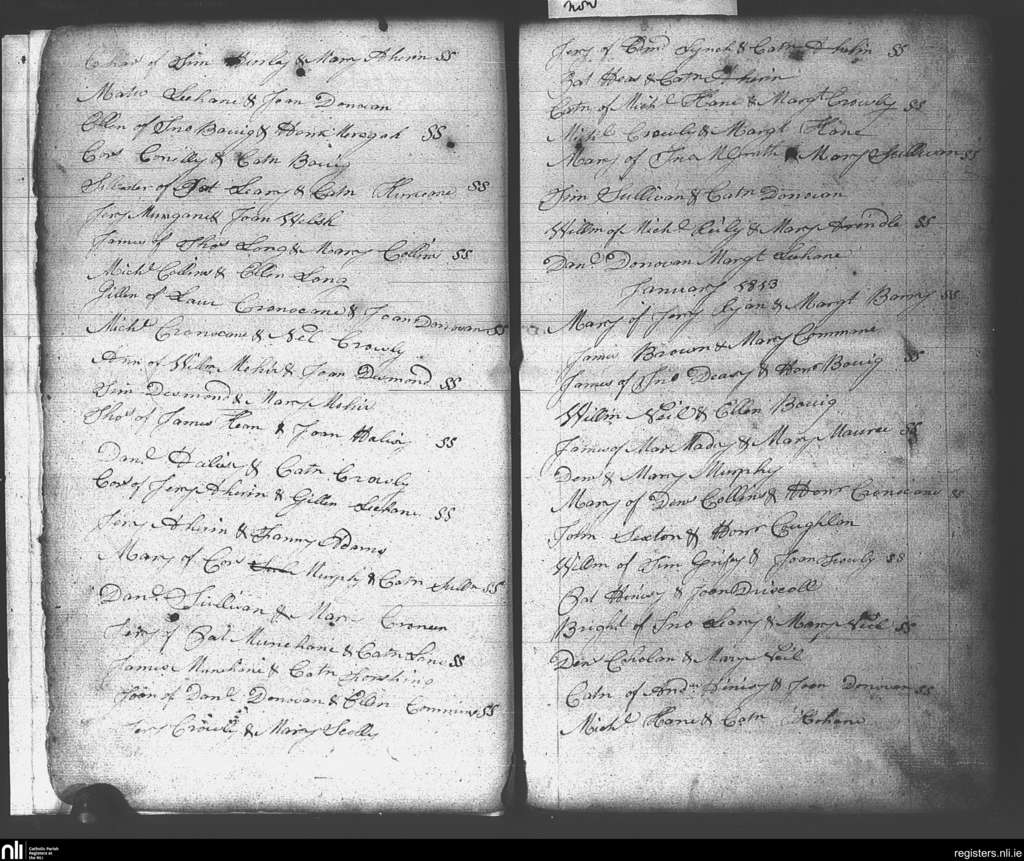 now
Char of Tim Hurly & Mary Aherin SS
Mateo Leehane & Joan Donovan
Ellen of Jno Bauig & Hona Keragah SS
Cors Conelly & Catn Bouig
of Pat Leary & Catn SS
Jery Mungane & Joan Welsh
James of Thos Long & Mary Collins SS
Michl Collins & Ellen Long
Gillen of Laur Cronocane & Joan Donovan SS
Michl Cronocane & Nel Crowly
Ann of Willm Mehir & Joan Desmond SS
Tim Desmond & Mary Mehir
Thos of James Kean & Joan Halisy SS
Danl Halisy & Catn Crowly
Cors of Jery Aherin & Gillen Leehane SS
Jery Aherin & Fanny Adams
Mary of Cors Murphy & Catn Sulln SS
Danl Sullivan & Mary Croneen
Jery of Pat Munehane & Catn Line SS
James Munehane & Catn
Joan of Danl Donovan & Ellen Commins SS
Jery Crowly & Mary Scolly
Jery of Edmd Lynch & Catn SS
Pat Heas & Catn Aherin
Catn of Michl Hane & Margt Crowly SS
Michl Crowly & Margt Hane
Mary of Jno McGrath & Mary Sullivan SS
Tim Sullivan & Catn Donovan
Willm of Michl Reily & Mary Arundle SS
Danl Donovan Margt Leehane
January 1813
Mary of Jery Ryan & Margt Barry SS
James Brown & Mary Commane
James of Jno Deasy & Honr Bouig SS
Willm Neil & Ellen Bouig
James of Mar Mady & Mary Mauree SS
Den & Mary Murphy
Mary of Den Collins & Honr Cronocane SS
John Sexton & Honr Coughlan
Willm of Tim & Joan Sowly SS
Pat Hinisy & Joan Driscoll
Bright of Jno Leary & Mary Neil SS
Den Carolan & Mary Neil
Catn of Andw Hinisy & Joan Donovan SS
Michl Hane & Catn Hehane
nli Catholic Parish Registers at the NLI
registers.nli.ie